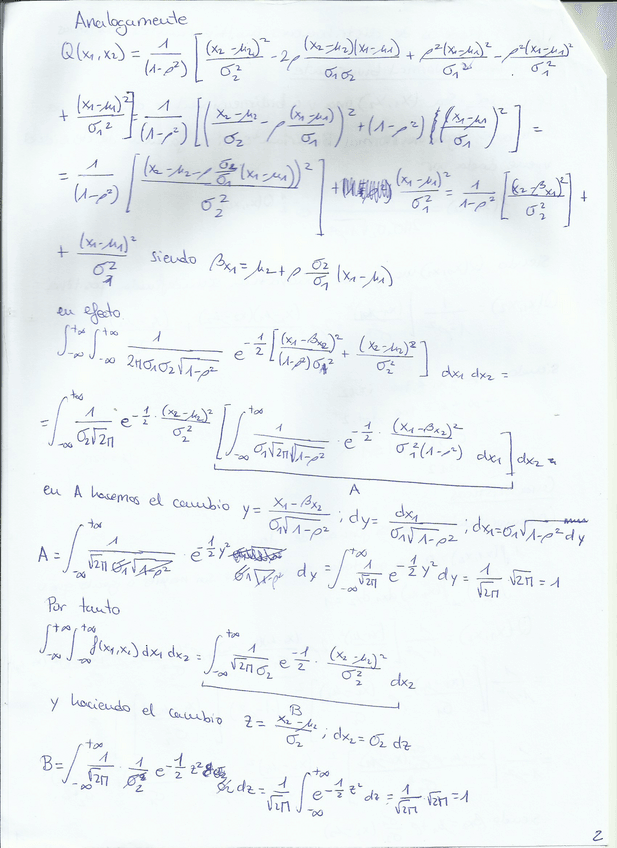 Analogamente
Q(x₁,x₂) = 1/(1-ρ²) [ (x₂-μ₂)²/σ₂² - 2ρ (x₂-μ₂)(x₁-μ₁)/σ₁σ₂ + ρ²(x₁-μ₁)²/σ₁² - ρ²(x₁-μ₁)²/σ₁²
+ (x₁-μ₁)²/σ₁² ] = 1/(1-ρ²) [ ( (x₂-μ₂)/σ₂ - ρ (x₁-μ₁)/σ₁ )² + (1-ρ²) ( (x₁-μ₁)/σ₁ )² ] =
= 1/(1-ρ²) [ (x₂-μ₂-ρ σ₂/σ₁ (x₁-μ₁))²/σ₂² ] + (x₁-μ₁)²/σ₁² = 1/(1-ρ²) [ (x₂-βx₁)²/σ₂² ] +
+ (x₁-μ₁)²/σ₁² siendo βx₁ = μ₂ + ρ σ₂/σ₁ (x₁-μ₁)
en efecto
∫₋∞⁺∞ ∫₋∞⁺∞ 1/(2πσ₁σ₂√(1-ρ²)) e^(-1/2 [ (x₁-βx₂)²/((1-ρ²)σ₁²) + (x₂-μ₂)²/σ₂² ]) dx₁ dx₂ =
= ∫₋∞⁺∞ 1/(σ₂√2π) · e^(-1/2 · (x₂-μ₂)²/σ₂²) [ ∫₋∞⁺∞ 1/(σ₁√2π√(1-ρ²)) · e^(-1/2 · (x₁-βx₂)²/(σ₁²(1-ρ²))) dx₁ ] dx₂ =
A
en A hacemos el cambio y = (x₁-βx₂)/(σ₁√(1-ρ²)) ; dy = dx₁/(σ₁√(1-ρ²)) ; dx₁ = σ₁√(1-ρ²) dy
A = ∫₋∞⁺∞ 1/(√2π σ₁√(1-ρ²)) · e^(-1/2 y²) σ₁√(1-ρ²) dy = ∫₋∞⁺∞ 1/√2π e^(-1/2 y²) dy = 1/√2π √2π = 1
Por tanto
∫₋∞⁺∞ ∫₋∞⁺∞ f(x₁,x₂) dx₁ dx₂ = ∫₋∞⁺∞ 1/(√2π σ₂) e^(-1/2 · (x₂-μ₂)²/σ₂²) dx₂
B
y haciendo el cambio z = (x₂-μ₂)/σ₂ ; dx₂ = σ₂ dz
B = ∫₋∞⁺∞ 1/√2π · 1/σ₂ e^(-1/2 z²) σ₂ dz = 1/√2π ∫₋∞⁺∞ e^(-1/2 z²) dz = 1/√2π √2π = 1
2